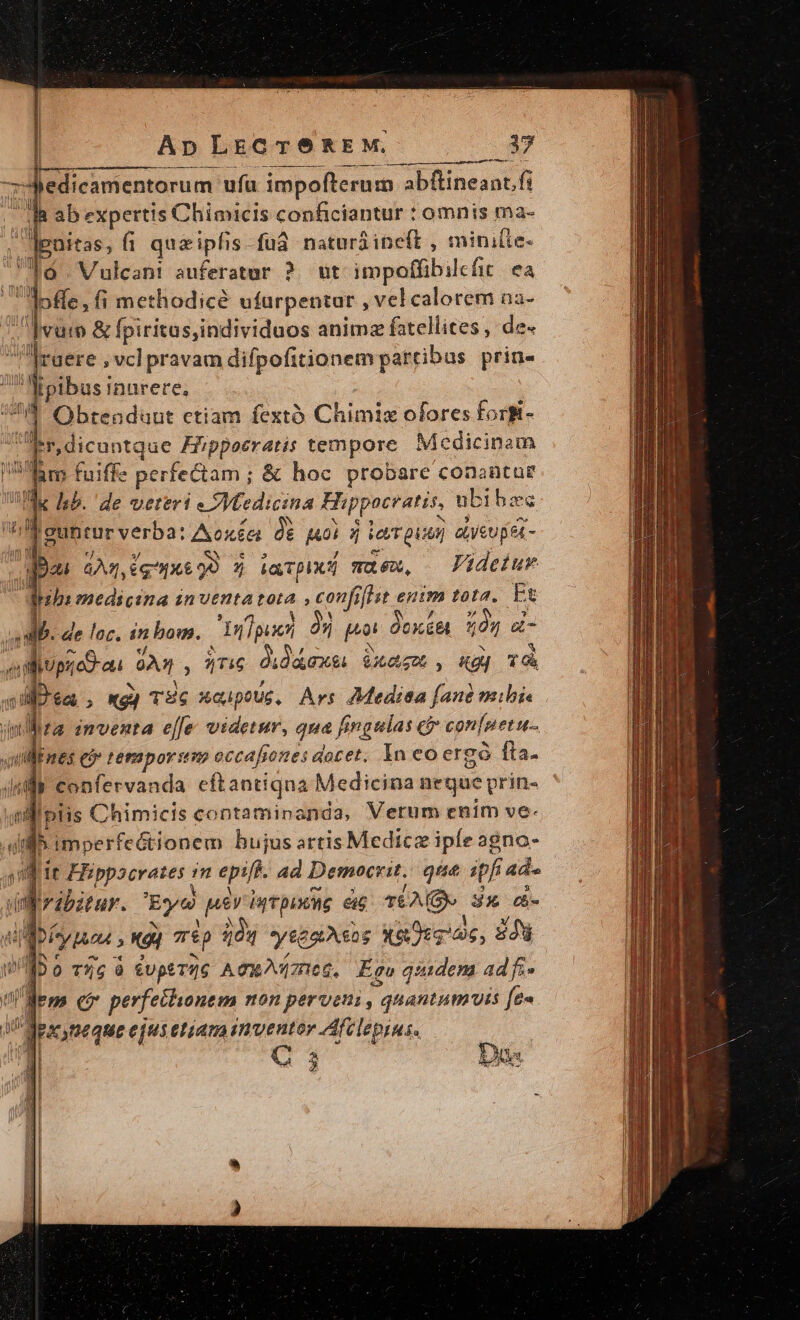 AD LECTOREM. 37
edicamentorum uſu impoſterum abſtineant, ſi
ab expertis Chimicis conficiantur : omnis ma-
gnitas, ſi quæ ipſis ſuâ naturâ ineſt , miniſte-
Vulcani auferatur ? ut impoſſibile ſit ea
oſſe, ſi methodicè uſurpentur , vel calorem na-
& ſpiritus, individuos animæ ſatellites , de-
ruere , vel pravam diſpoſitionem partibus prin-
pibus inurere.
Obtendunt etiam ſextò Chimiæ oſores
dicuntque Hippocratis tempore Medicinam
fuiſſe perfectam ; & hoc probare conantur
lib. de veteri Medicina Hippocratis, ubi hæc
verba: Δοκέει δέ μοι ἡ ἰατρικὴ ἀνευρέ-
ὅλη, ἡ ἰατρικὴ πᾶσα, Videtur
medicina inventa tota , conſiſtit enim tota. Et
de loc. in hom. Ἰητρικὴ δή μοι δοκέει ἤδη ἀ-
ὅλη , ἥτις διδάσκει ἕκαστα , καὶ τὰ
καὶ τὸς καιρούς. Ars Medica ſanè mihi
inventa eſſe videtur, qua ſingulas & conſuetu-
nes & temporum occaſiones docet. In eo ergò ſta-
conſervanda eſt antiqua Medicina neque prin-
piis Chimicis contaminanda, Verum enim ve-
imperfectionem hujus artis Medicæ ipſe agno-
it Hippocrates in epiſt. ad Democrit. quæ ipſi ad-
ribitur. Ἐγὼ μὲν ἰητρικῆς ἐς τέλος ὐκ ἀ-
καὶ περ ἤδη γηραλέος καθεστὼς, ὐδὲ
ὁ τῆς ὁ εὑρετὴς Ἀσκληπιός. Ego quidem ad fi-
nem & perfectionem non perveni , quantumvis ſe-
neque ejus etiam inventor Aſclepius.
C 3